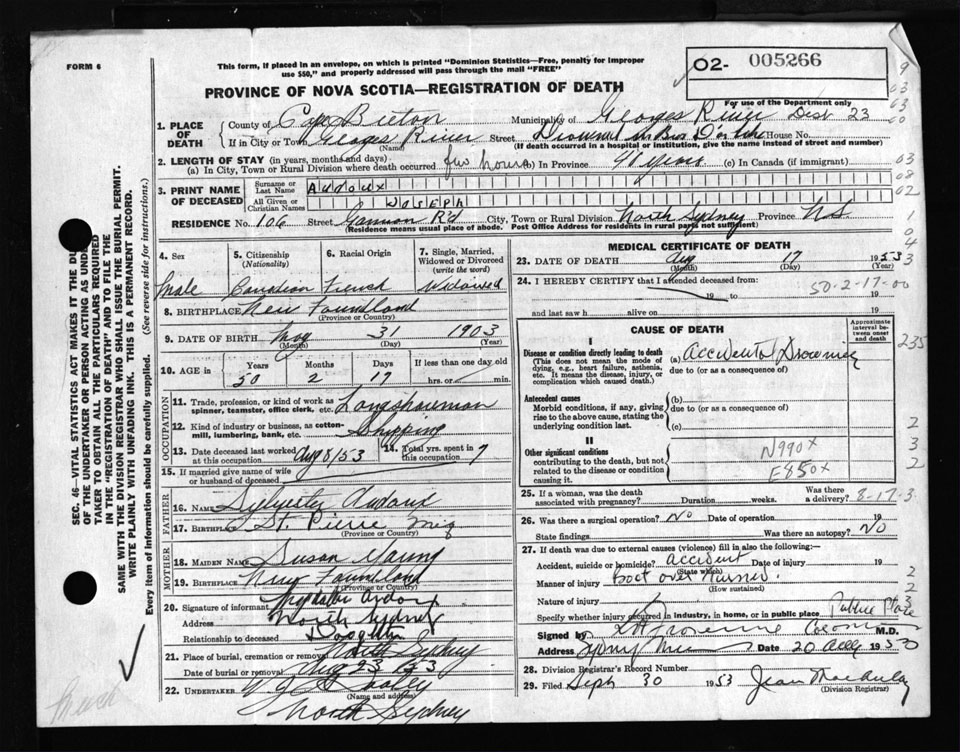 FORM 6
This form, if placed in an envelope, on which is printed "Dominion Statistics—Free, penalty for improper
use $50," and properly addressed will pass through the mail "FREE"
O2- 005266
For use of the Department only
PROVINCE OF NOVA SCOTIA—REGISTRATION OF DEATH
1. PLACE OF DEATH
County of Cape Breton Municipality of Georges River Dist 23
If in City or Town Georges River Street Drowned in Bras D'or Lake House No.
(Name) (If death occurred in a hospital or institution, give the name instead of street and number)
2. LENGTH OF STAY (in years, months and days)
(a) In City, Town or Rural Division where death occurred few hours (b) In Province 41 years (c) In Canada (if immigrant)
3. PRINT NAME OF DECEASED
Surname or Last Name Audoux
All Given or Christian Names JOSEPH
RESIDENCE No. 106 Street Gannon R'd City, Town or Rural Division North Sydney Province N.S
(Residence means usual place of abode. Post Office Address for residents in rural parts not sufficient)
4. Sex
Male
5. Citizenship (Nationality)
Canadian
6. Racial Origin
French
7. Single, Married, Widowed or Divorced (write the word)
Widowed
8. BIRTHPLACE New Foundland
(Province or Country)
9. DATE OF BIRTH May 31 1903
(Month) (Day) (Year)
10. AGE in Years Months Days If less than one day
50 2 17 hrs. or min.
OCCUPATION
11. Trade, profession, or kind of work as spinner, teamster, office clerk, etc. Longshoreman
12. Kind of industry or business, as cotton-mill, lumbering, bank, etc. Shipping
13. Date deceased last worked at this occupation Aug 8/53
14. Total yrs. spent in this occupation 7
15. If married give name of wife or husband of deceased
FATHER
16. Name Sylvester Audoux
17. Birthplace St. Pierre Miq
(Province or Country)
MOTHER
18. MAIDEN NAME Susan Young
19. BIRTHPLACE New Foundland
(Province or Country)
20. Signature of informant
Address North Sydney
Relationship to deceased Daughter
21. Place of burial, cremation or removal North Sydney
Date of burial or removal Aug 23 53
22. UNDERTAKER
(Name and address)
North Sydney
MEDICAL CERTIFICATE OF DEATH
23. DATE OF DEATH Aug 17 1953
(Month) (Day) (Year)
24. I HEREBY CERTIFY that I attended deceased from:
19 to 19
and last saw h alive on 19
50-2-17-00
CAUSE OF DEATH
Approximate interval between onset and death
I
Disease or condition directly leading to death
(This does not mean the mode of dying, e.g., heart failure, asthenia, etc. It means the disease, injury, or complication which caused death.
(a) Accidental Drowning
due to (or as a consequence of)
Antecedent causes
Morbid conditions, if any, giving rise to the above cause, stating the underlying condition last.
(b)
due to (or as a consequence of)
(c)
II
Other significant conditions
contributing to the death, but not related to the disease or condition causing it.
N990X
E850X
25. If a woman, was the death associated with pregnancy? Duration weeks. Was there a delivery?
8-17-3
26. Was there a surgical operation? No Date of operation 19
State findings Was there an autopsy? No
27. If death was due to external causes (violence) fill in also the following:—
Accident, suicide or homicide? Accident Date of injury 19
(State which)
Manner of injury boat over turned.
(How sustained)
Nature of injury
Specify whether injury occurred in industry, in home, or in public place Public Place
Signed by M.D.
Address Sydney Mines Date 20 Aug 1953
28. Division Registrar's Record Number
29. Filed Sept 30 1953 Jean MacAulay
(Division Registrar)
SEC. 46—VITAL STATISTICS ACT MAKES IT THE DUTY
OF THE UNDERTAKER OR PERSON ACTING AS UNDER-
TAKER TO OBTAIN ALL THE PARTICULARS REQUIRED
IN THE "REGISTRATION OF DEATH" AND TO FILE THE
SAME WITH THE DIVISION REGISTRAR WHO SHALL ISSUE THE BURIAL PERMIT.
WRITE PLAINLY WITH UNFADING INK. THIS IS A PERMANENT RECORD.
Every item of information should be carefully supplied. (See reverse side for instructions.)
235